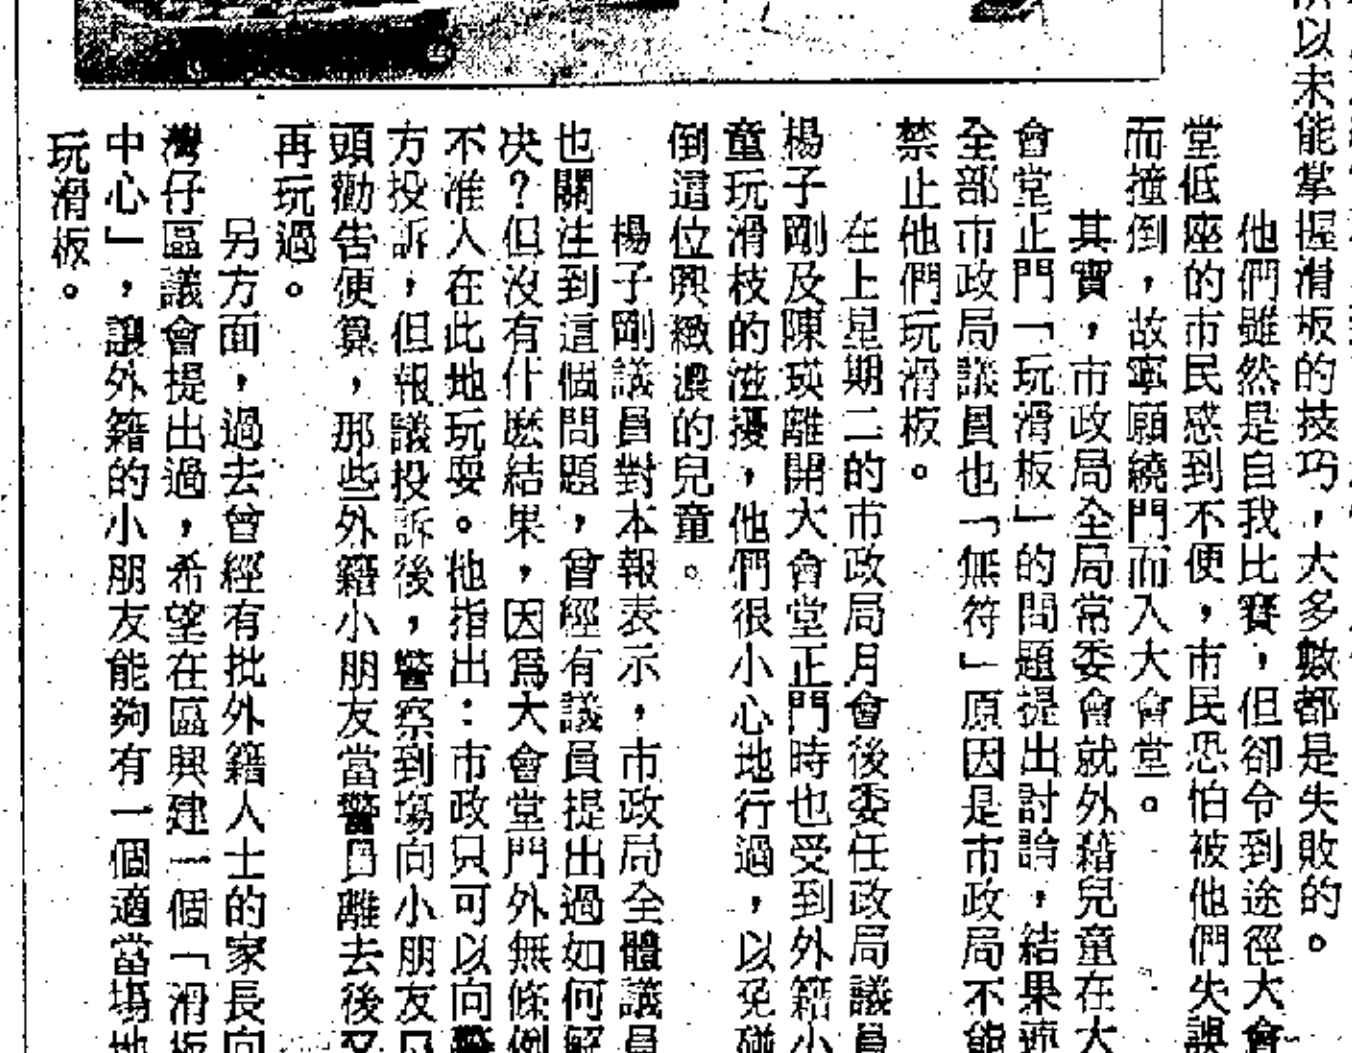 以未能掌握滑板的技巧，大多數都是失敗的。
他們雖然是自我比賽，但卻令到途徑大會
堂低座的市民感到不便，市民恐怕被他們失誤
而撞倒，故寧願繞門而入大會堂。
其實，市政局全局常委會就外籍兒童在大
會堂正門「玩滑板」的問題提出討論，結果連
全部市政局議員也「無符」原因是市政局不能
禁止他們玩滑板。
在上星期二的市政局月會後委任政局議員
楊子剛及陳瑛離開大會堂正門時也受到外籍小
童玩滑枝的滋擾，他們很小心地行過，以免碰
倒這位興緻濃的兒童。
楊子剛議員對本報表示，市政局全體議員
也關注到這個問題，曾經有議員提出過如何解
決？但沒有什麽結果，因爲大會堂門外無條例
不准人在此地玩耍。他指出：市政只可以向警
方投訴，但報議投訴後，警察到塲向小朋友口
頭勸告便算，那些外籍小朋友當警員離去後又
再玩過。
另方面，過去曾經有批外籍人士的家長向
灣仔區議會提出過，希望在區興建一個「滑板
中心」，讓外籍的小朋友能夠有一個適當塲地
玩滑板。